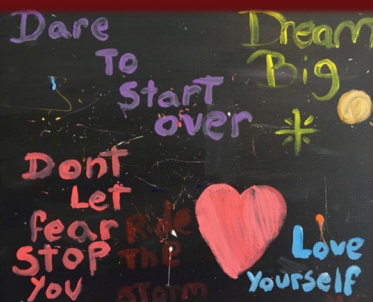 Dare
To
Start
over
Dream
Big
Dont
Let
fear
STOP
You
Ride
The
STorm
Love
Yourself